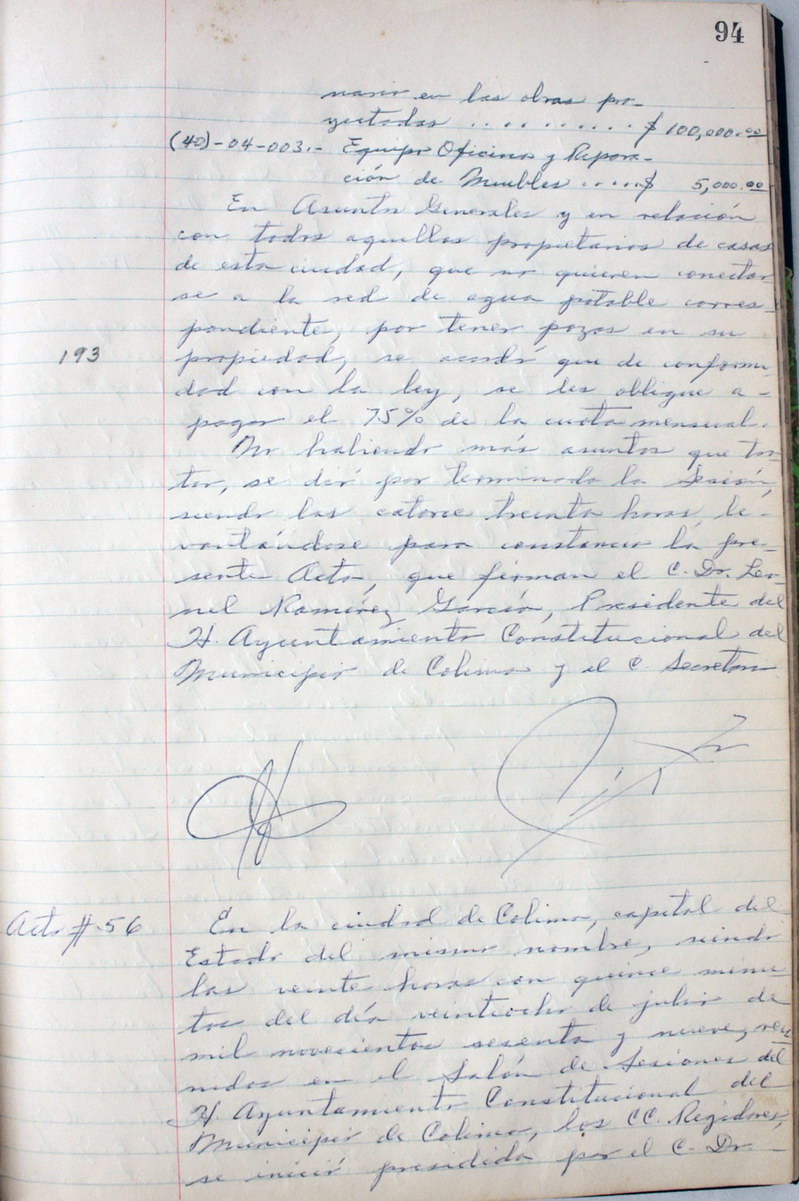 94
nario en las obras pro-
yectadas .......... $ 100,000.00
(40)-04-003.- Equipo Oficinas y Repara-
ción de Muebles ..... $ 5,000.00
En Asuntos Generales y en relación
con todos aquellos propietarios de casas
de esta ciudad, que no quieren conectar
se a la red de agua potable corres-
pondiente, por tener pozos en su
193
propiedad, se acordó que de conformi
dad con la ley, se les obligue a-
pagar el 75% de la cuota mensual.
No habiendo más asuntos que tra-
tar, se dió por terminada la Sesión,
siendo las catorce treinta horas, le-
vantándose para constancia la pre-
sente Acta, que firman el C. Dr. Leo-
nel Ramírez García, Presidente del
H. Ayuntamiento Constitucional del
Municipio de Colima y el C. Secretario
Acta #-56
En la ciudad de Colima, capital del
Estado del mismo nombre, siendo
las veinte horas con quince minu
tos del día veintiocho de julio de
mil novecientos sesenta y nueve, reu
nidos en el Salón de Sesiones del
H. Ayuntamiento Constitucional del
Municipio de Colima, los CC. Regidores,
se inició presidida por el C. Dr. -